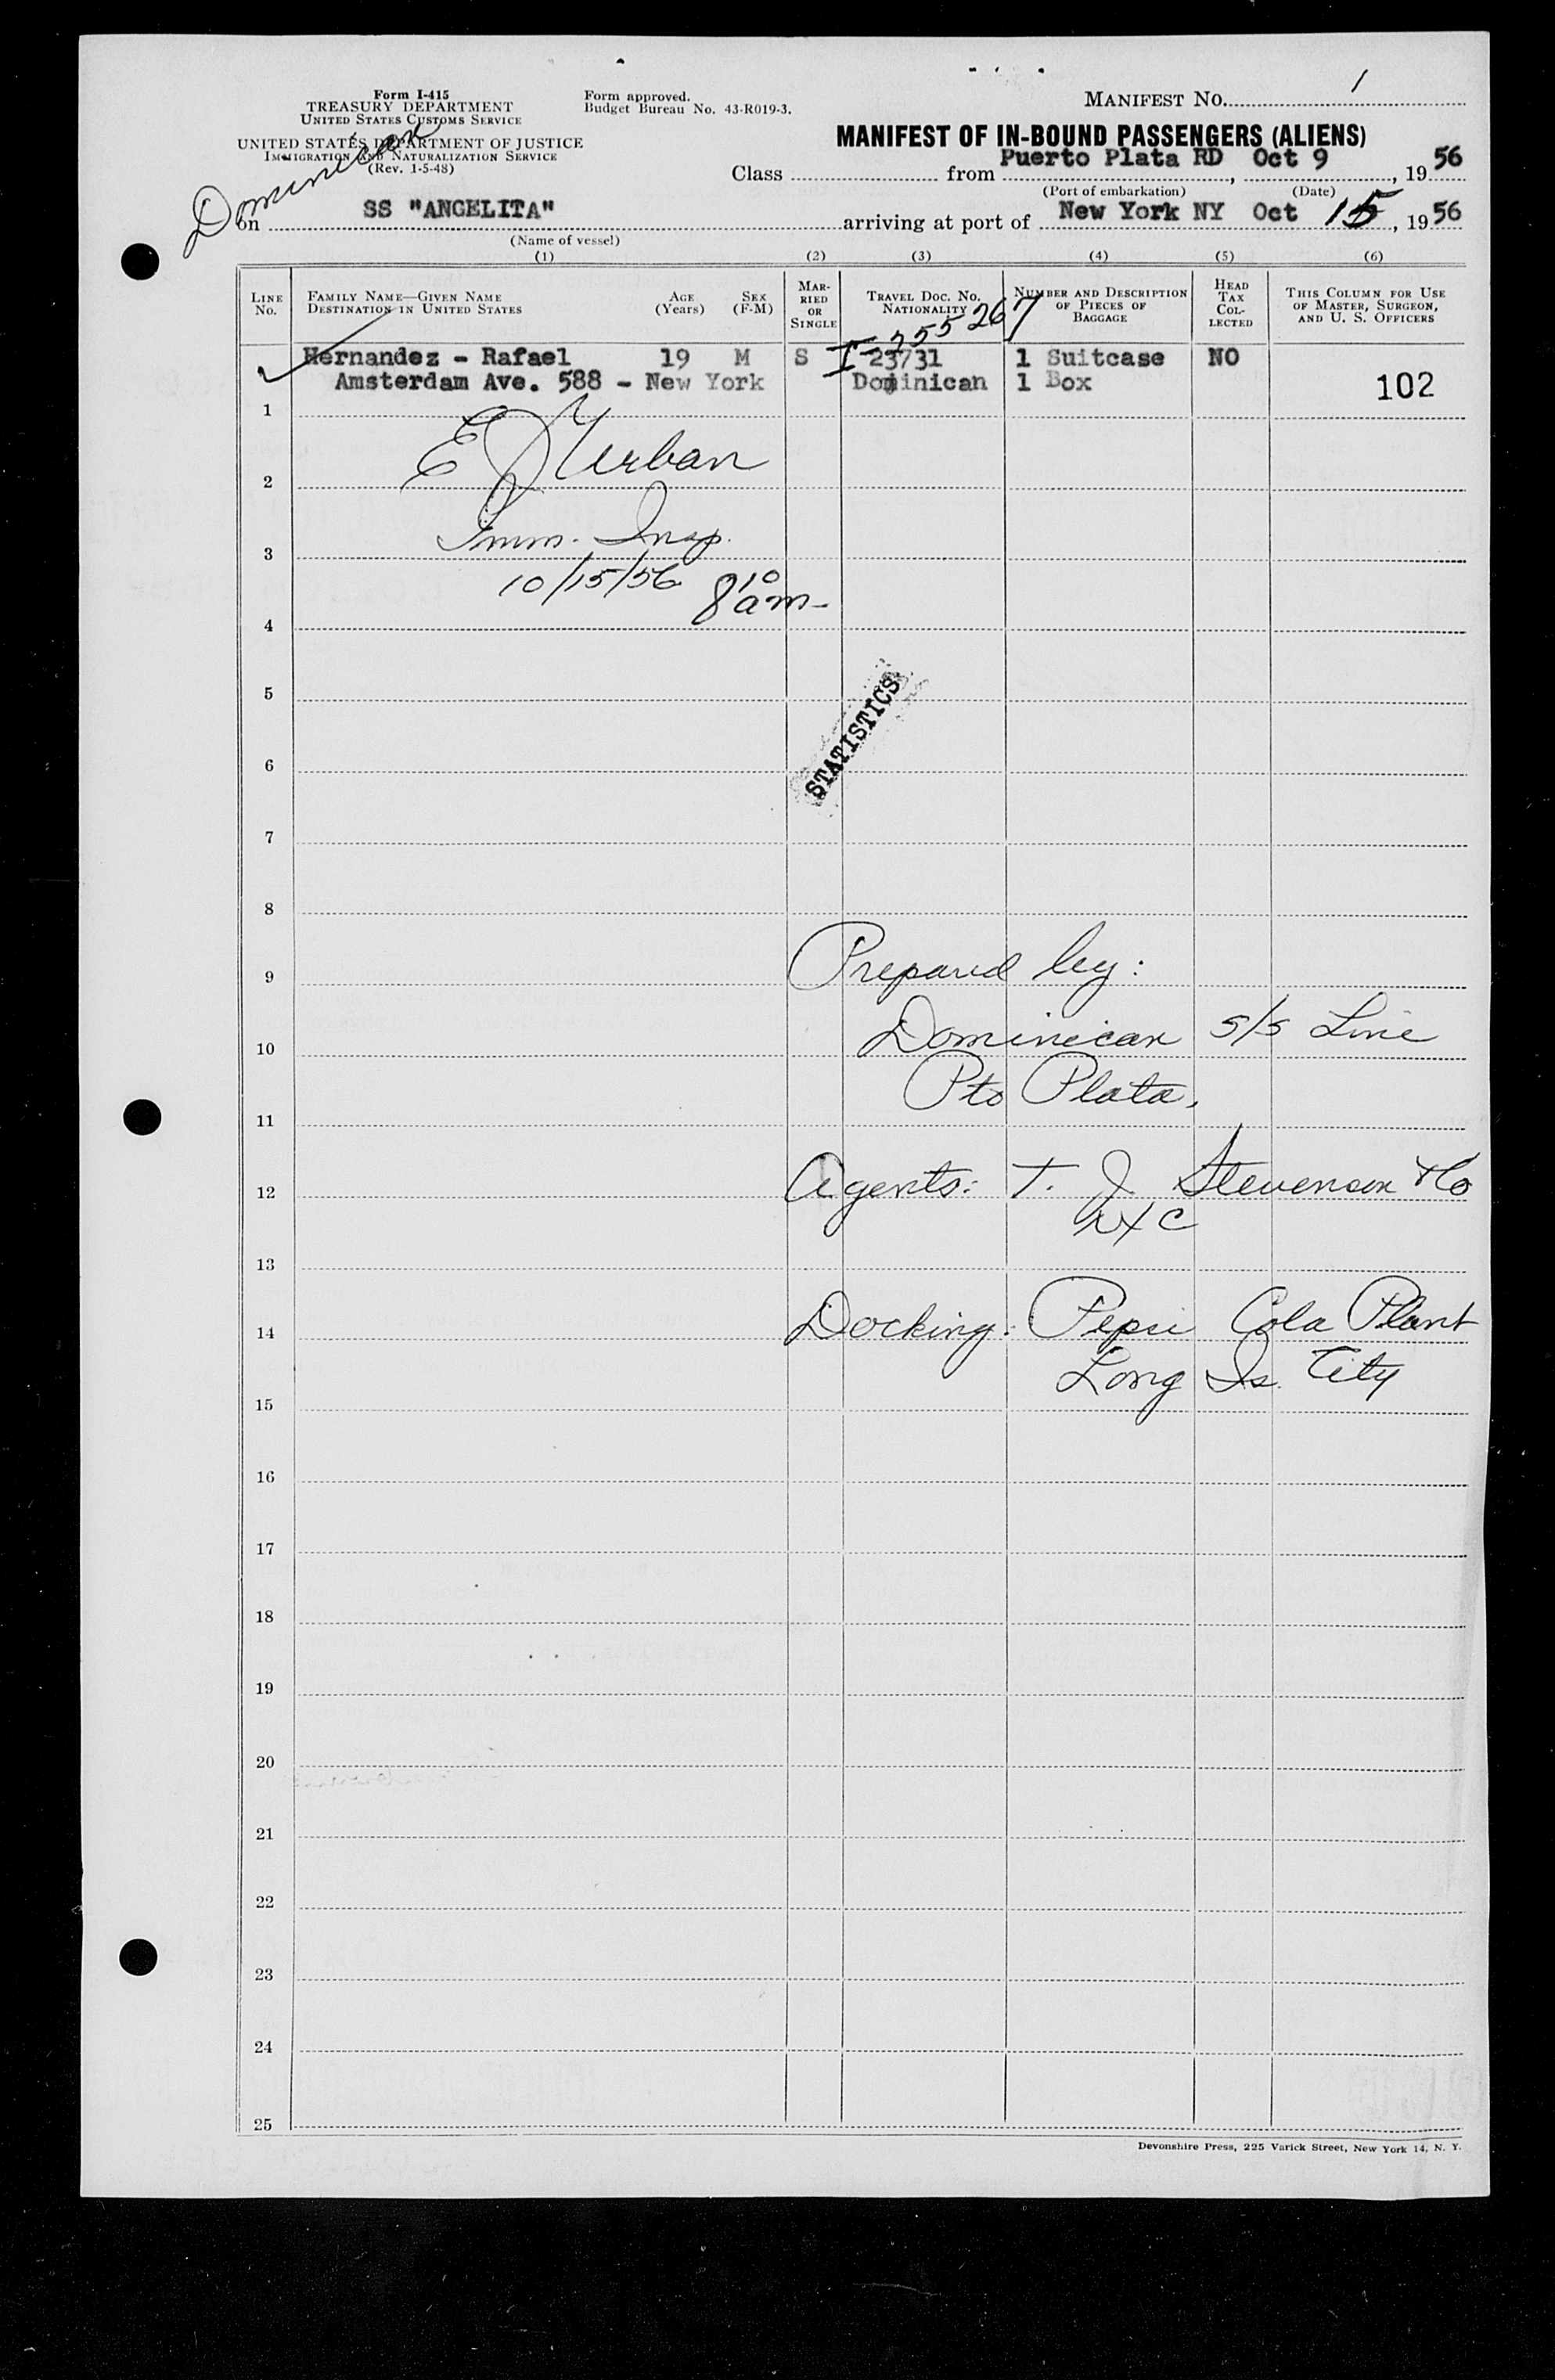 Form I-415
TREASURY DEPARTMENT
UNITED STATES CUSTOMS SERVICE
UNITED STATES DEPARTMENT OF JUSTICE
IMMIGRATION AND NATURALIZATION SERVICE
(Rev. 1-5-48)
Form approved.
Budget Bureau No. 43-R019-3.
MANIFEST NO. 1
MANIFEST OF IN-BOUND PASSENGERS (ALIENS)
Class from Puerto Plata RD, Oct 9, 1956
(Port of embarkation) (Date)
Dominican
on SS "ANGELITA" arriving at port of New York NY Oct 15, 1956
(Name of vessel)
(1) (2) (3) (4) (5) (6)
LINE No.
FAMILY NAME—GIVEN NAME
DESTINATION IN UNITED STATES
AGE (Years)
SEX (F-M)
MARRIED OR SINGLE
TRAVEL DOC. NO.
NATIONALITY
NUMBER AND DESCRIPTION OF PIECES OF BAGGAGE
HEAD TAX COLLECTED
THIS COLUMN FOR USE OF MASTER, SURGEON, AND U. S. OFFICERS
I-255267
Hernandez - Rafael 19 M S 23731 1 Suitcase NO
Amsterdam Ave. 588 - New York Dominican 1 Box 102
1
E J Urban
2
Imm. Insp.
3
10/15/56 8 10 am-
4
5
STATISTICS
6
7
8
Prepared by:
9
Dominican S/S Line
10
Pto Plata,
11
Agents: T. J Stevenson & Co
12
NYC
13
Docking: Pepsi Cola Plant
14
Long Is. City
15
16
17
18
19
20
21
22
23
24
25
Devonshire Press, 225 Varick Street, New York 14, N. Y.